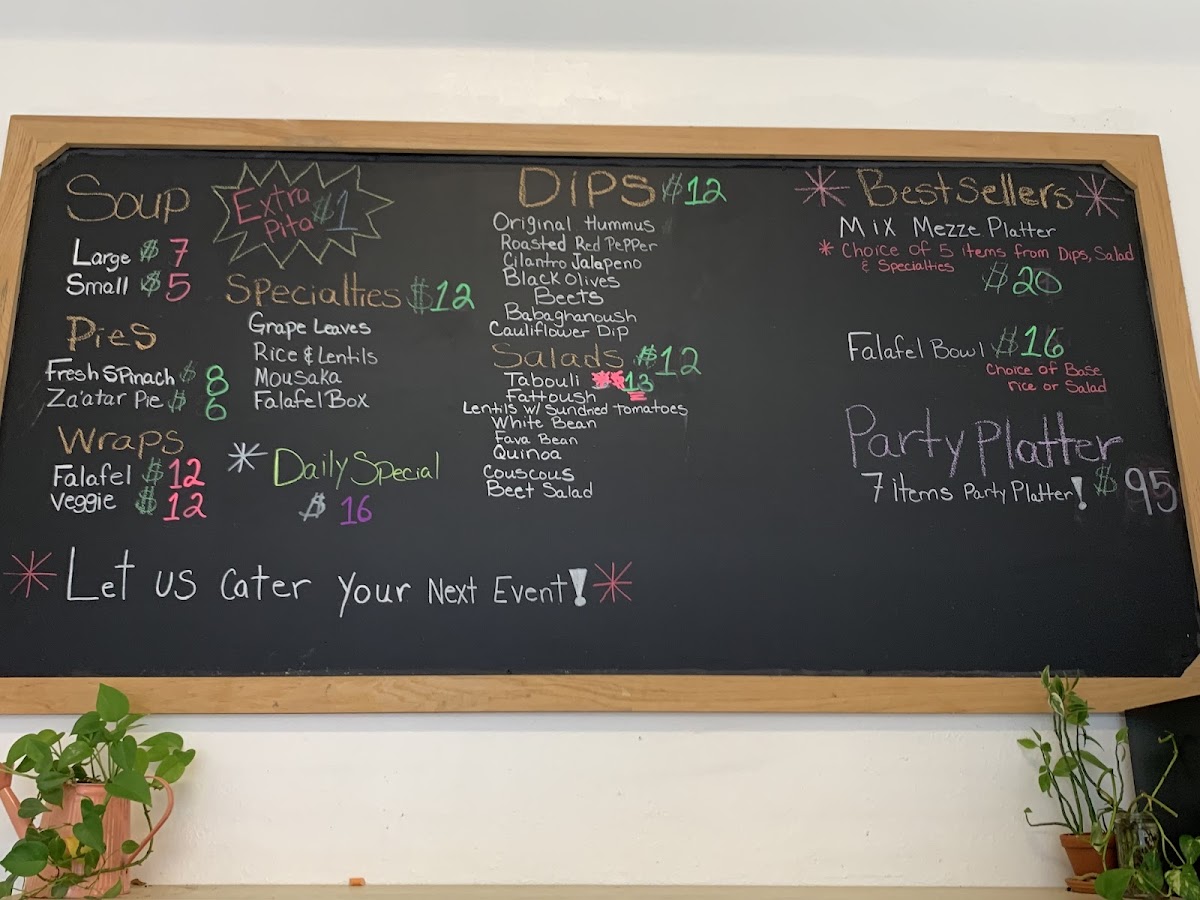 Soup
Large $ 7
Small $ 5
Pies
Fresh Spinach $ 8
Za'atar Pie $ 6
Wraps
Falafel $ 12
Veggie $ 12
Extra
Pita $1
Specialties $12
Grape Leaves
Rice & Lentils
Mousaka
Falafel Box
* Daily Special
$ 16
Dips $12
Original Hummus
Roasted Red Pepper
Cilantro Jalapeno
Black Olives
Beets
Babaghanoush
Cauliflower Dip
Salads $12
Tabouli 13
Fattoush
Lentils w/ Sundried Tomatoes
White Bean
Fava Bean
Quinoa
Couscous
Beet Salad
* Best Sellers *
Mix Mezze Platter
* Choice of 5 items from Dips, Salad
& Specialties
$20
Falafel Bowl $16
Choice of Base
rice or Salad
Party Platter
7 items Party Platter! $ 95
* Let us cater your Next Event! *